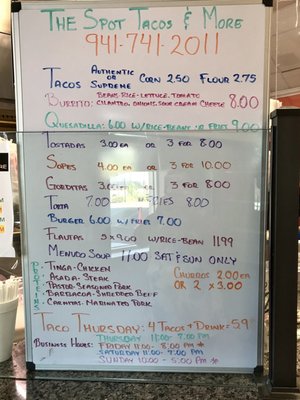 The Spot Tacos & More
941-741-2011
Tacos Authentic or Supreme Corn 2.50 Flour 2.75
Burrito: Beans, Rice, Lettuce, Tomato
Cilantro, Onions, Sour Cream Cheese 8.00
Quesadilla: 6.00 w/Rice-Beans & Fries 9.00
Tostadas 3.00 ea or 3 for 8.00
Sopes 4.00 ea or 3 for 10.00
Gorditas 3.00 ea or 3 for 8.00
Torta 7.00 w/Fries 8.00
Burger 6.00 w/Fries 7.00
Flautas 5 x 9.00 w/Rice-Bean 11.99
Menudo Soup 11.00 Sat & Sun Only
Proteins
Tinga-Chicken
Asada-Steak
Pastor-Seasoned Pork
Barbacoa-Shredded Beef
Carnitas-Marinated Pork
Churros 2.00 ea
or 2 x 3.00
Taco Thursday: 4 Tacos + Drink =
Business Hours: Thursday 11:00- 7:00 PM
Friday 11:00 - 8:00 PM
Saturday 11:00- 7:00 PM
Sunday 10:00 - 5:00 PM